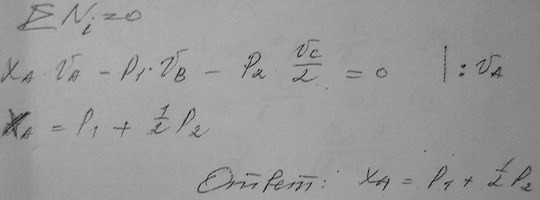 ΣN_i=0
X_A · V_A - P_1 · V_B - P_2 V_C/2 = 0 | : V_A
X_A = P_1 + 1/2 P_2
Ответ: X_A = P_1 + 1/2 P_2